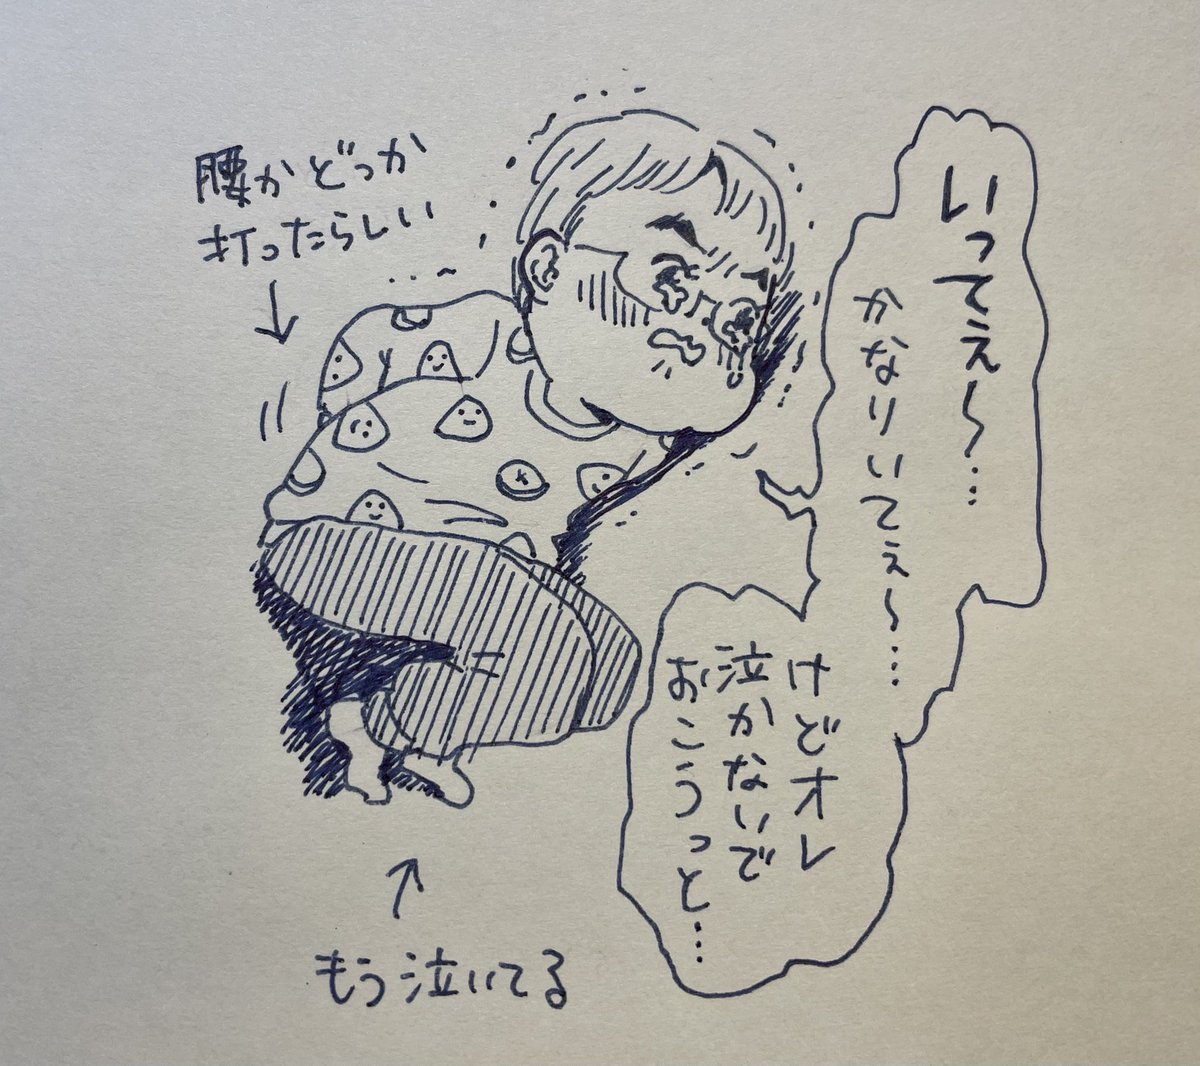 腰かどっか
打ったらしい
いってえ〜…
かなりいてぇ〜…
けどオレ
泣かないで
おこうっと…
もう泣いてる